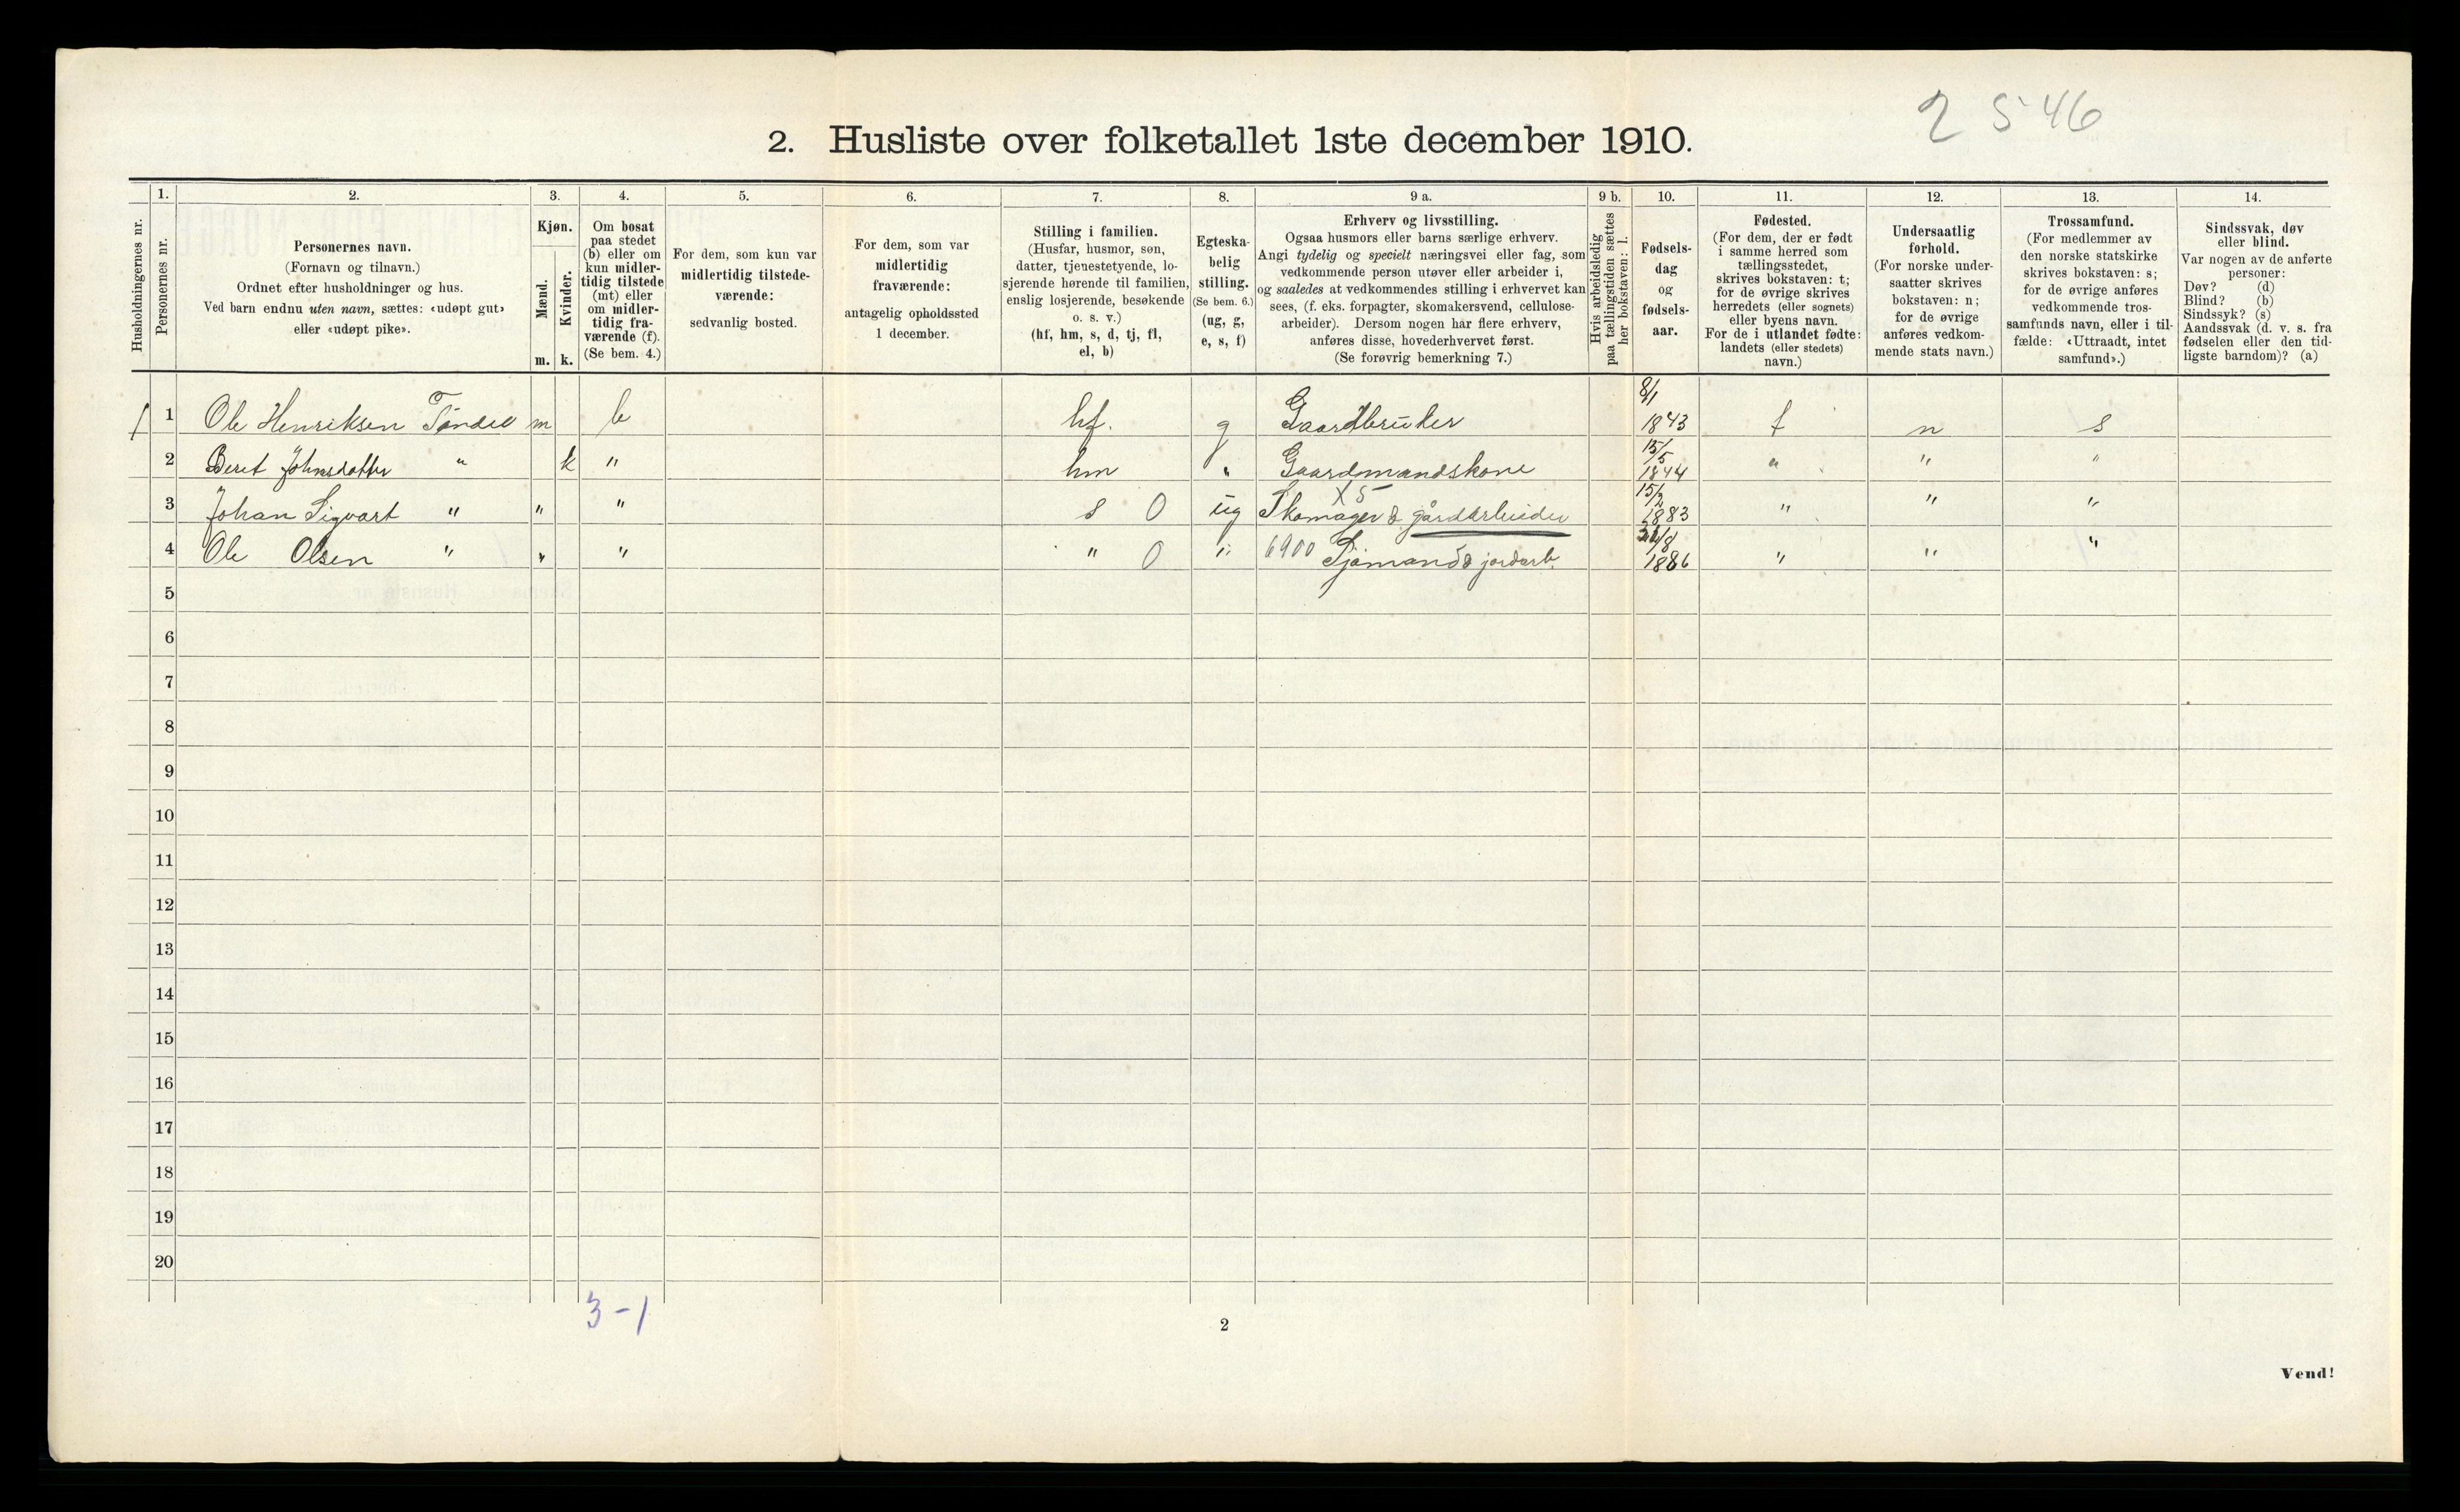 2 5 46
2. Husliste over folketallet 1ste december 1910.
Husholdningernes nr.
1.
Personernes nr.
2.
Personernes navn.
(Fornavn og tilnavn.)
Ordnet efter husholdninger og hus.
Ved barn endnu uten navn, sættes: «udøpt gut»
eller «udøpt pike».
3.
Kjøn.
Mænd.
m.
Kvinder.
k.
4.
Om bosat
paa stedet
(b) eller om
kun midler-
tidig tilstede
(mt) eller
om midler-
tidig fra-
værende (f).
(Se bem. 4.)
5.
For dem, som kun var
midlertidig tilstede-
værende:
sedvanlig bosted.
6.
For dem, som var
midlertidig
fraværende:
antagelig opholdssted
1 december.
7.
Stilling i familien.
(Husfar, husmor, søn,
datter, tjenestetyende, lo-
sjerende hørende til familien,
enslig losjerende, besøkende
o. s. v.)
(hf, hm, s, d, tj, fl,
el, b)
8.
Egteska-
belig
stilling.
(Se bem. 6.)
(ug, g,
e, s, f)
9 a.
Erhverv og livsstilling.
Ogsaa husmors eller barns særlige erhverv.
Angi tydelig og specielt næringsvei eller fag, som
vedkommende person utøver eller arbeider i,
og saaledes at vedkommendes stilling i erhvervet kan
sees, (f. eks. forpagter, skomakersvend, cellulose-
arbeider). Dersom nogen har flere erhverv,
anføres disse, hovederhvervet først.
(Se forøvrig bemerkning 7.)
9 b.
Hvis arbeidsledig
paa tællingstiden sættes
her bokstaven: l.
10.
Fødsels-
dag
og
fødsels-
aar.
11.
Fødested.
(For dem, der er født
i samme herred som
tællingsstedet,
skrives bokstaven: t;
for de øvrige skrives
herredets (eller sognets)
eller byens navn.
For de i utlandet fødte:
landets (eller stedets)
navn.)
12.
Undersaatlig
forhold.
(For norske under-
saatter skrives
bokstaven: n;
for de øvrige
anføres vedkom-
mende stats navn.)
13.
Trossamfund.
(For medlemmer av
den norske statskirke
skrives bokstaven: s;
for de øvrige anføres
vedkommende tros-
samfunds navn, eller i til-
fælde: «Uttraadt, intet
samfund».)
14.
Sindssvak, døv
eller blind.
Var nogen av de anførte
personer:
Døv? (d)
Blind? (b)
Sindssyk? (s)
Aandssvak (d. v. s. fra
fødselen eller den tid-
ligste barndom)? (a)
1 1 Ole Henriksen m b hf. g Gaardbruker 8/1 1843 t n s
2 Beret Johnsdatter " k " hm " Gaardmandskone 15/5 1844 " " "
3 Johan Sigvart " " " s 0 ug Skomager & gårdarbeider X5 15/2 1883 " " "
4 Ole Olsen " " " " 0 " 6900 Sjømand & jordarb. /8 1886 " " "
5
6
7
8
9
10
11
12
13
14
15
16
17
18
19
20
3 - 1
2
Vend!